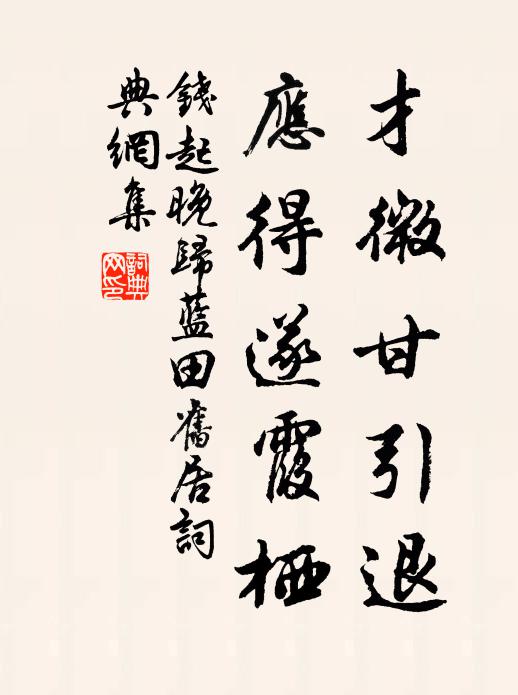 才微甘引退
應得遂霞栖
錢起晚歸藍田舊居詞
典網集
詞典网印